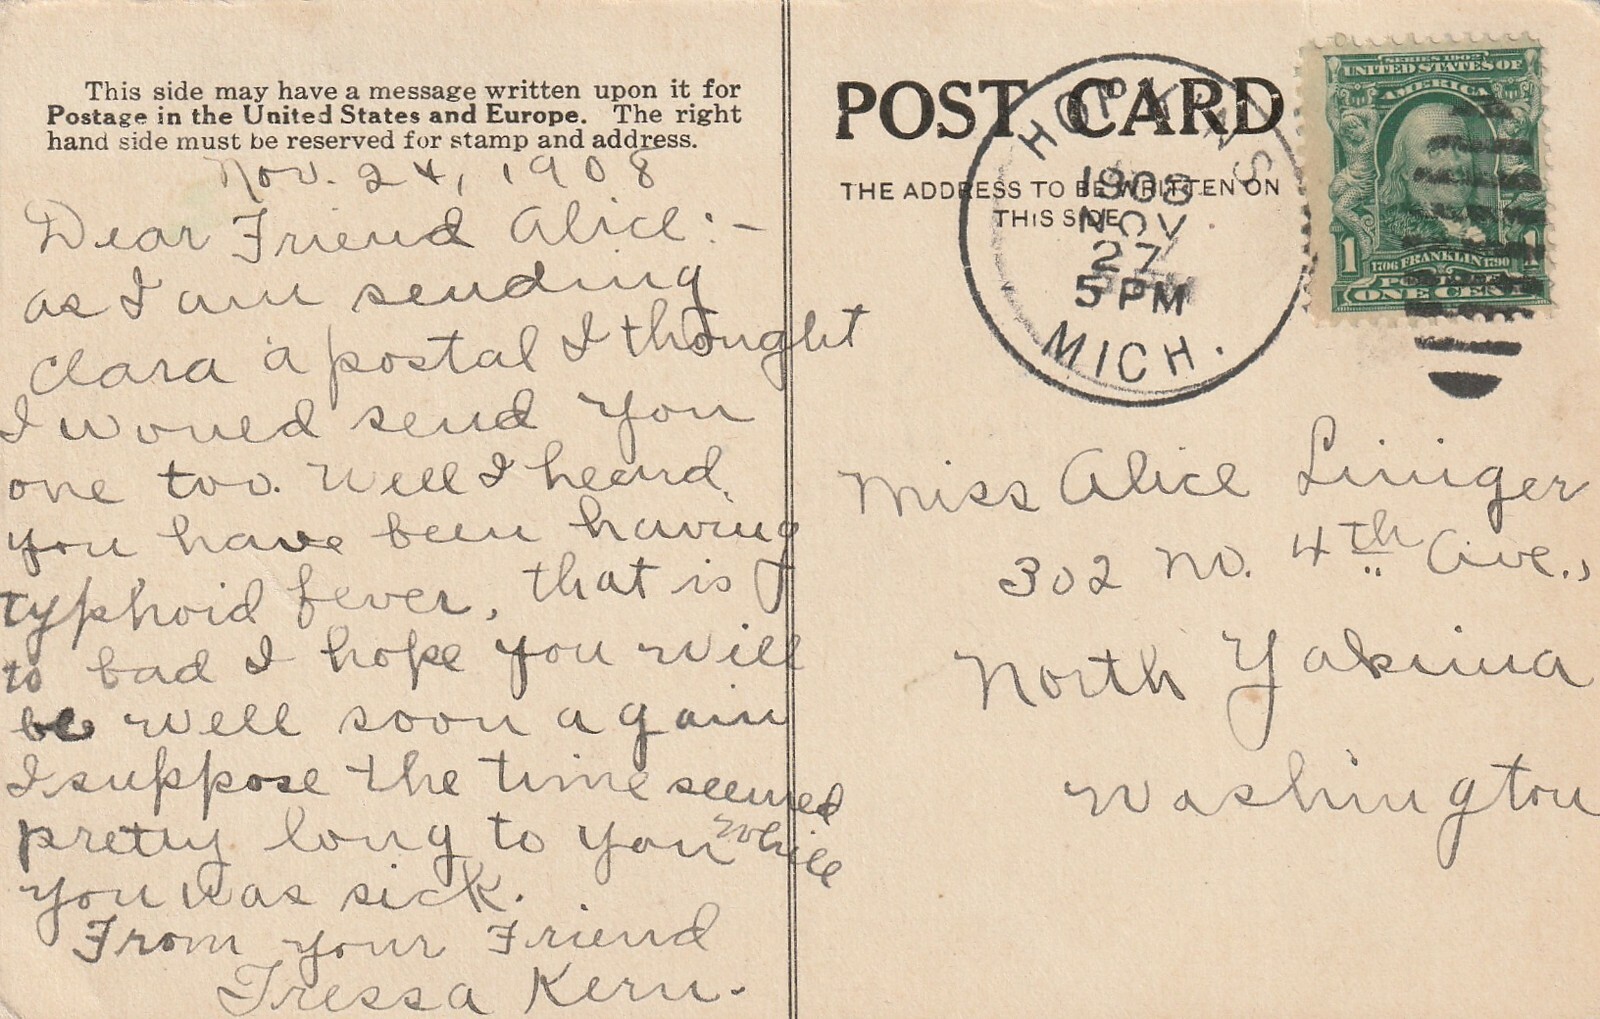 This side may have a message written upon it for
Postage in the United States and Europe. The right
hand side must be reserved for stamp and address.
Nov. 24, 1908
Dear Friend Alice:-
as I am sending
Clara a postal I thought
I would send you
one too. Well I heard
you have been having
typhoid fever, that is
to bad I hope you will
be well soon again
I suppose the time seemed
pretty long to you while
you was sick.
From your Friend
Tressa Kern.
POST CARD
THE ADDRESS TO BE WRITTEN ON
THIS SIDE
HOPKINS
1908
NOV
27
5 PM
MICH.
SERIES 1902
UNITED STATES OF
AMERICA
1 1
1706 FRANKLIN 1790
POSTAGE
ONE CENT
Miss Alice Liniger
302 No. 4th Ave.,
North Yakima
Washington